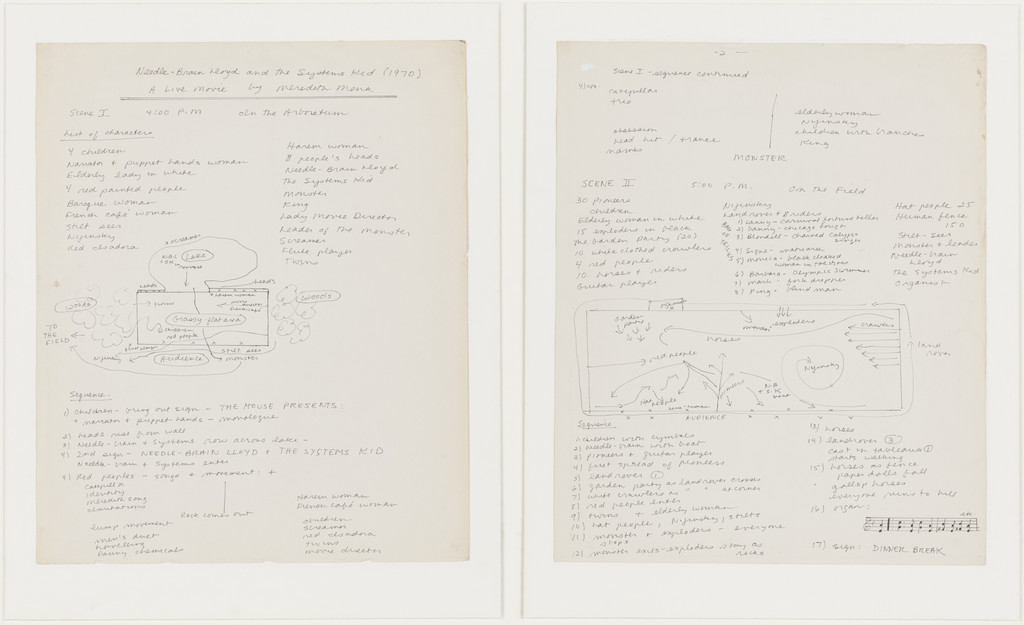 Needle-Brain Lloyd and the Systems Kid (1970)
A Live Movie by Meredith Monk
Scene I 4:00 P.M. On the Arboretum
List of characters
4 children
Narrator + puppet hands woman
Elderly lady in white
4 red painted people
Baroque woman
French café woman
Stilt seer
Nijinsky
Red isadora
Harem woman
8 people's heads
Needle-Brain Lloyd
The Systems Kid
Monster
King
Lady Movie Director
Leader of the Monster
Screamer
Flute player
Twins
x screamer
Lake
heads
heads
harem woman
Woods
Woods
twins
Grassy-flat area
children
red people
TO
THE
FIELD
Nijinsky
Audience
Stilt seer
monster
Sequence:
1) children - bring out sign - THE MOUSE PRESENTS:
+ narrator + puppet hands - monologue
2) heads rise from wall
3) Needle-brain + Systems row across lake -
4) 2nd sign - NEEDLE-BRAIN LLOYD + THE SYSTEMS KID
Needle-brain + Systems enter
5) Red peoples - songs + movement: +
identity
meredith song
Rock comes out
lump movement
men's duet
travelling
Danny chemicals
Harem woman
French café woman
children
screamer
red isadora
twins
movie director
- 2 -
Scene I - sequence continued
caterpillar
trio
obsession
head hit / trance
names
elderly woman
Nijinsky
children with branches
King
MONSTER
SCENE II 5:00 P.M. On the Field
30 pioneers
children
Elderly woman in white
15 exploders in black
the Garden Party (20)
10 white clothed crawlers
4 red people
10 horses + riders
Guitar player
Nijinsky
Landrover + 8 riders
1) Lanny - charcoal fortune teller
2) Danny - chicago tough
3) Blondell - chained Calypso singer
4) Signe - matriarc
5) Monica - black cloaked
6) Barbara - Olympic Swimmer
7) Mark - fork dropper
8) Ping - blind man
Hat people 25
Human fence
150
Stilt-Seer
Monster + leader
Needle-brain
Lloyd
The Systems Kid
Organist
garden
party
exploders
crawlers
horses
land
rover
red people
Nijinsky
Hat
people
N-B
+ S.K
boat
AUDIENCE
Sequence
1) children with cymbals
2) Needle-brain with boat
3) pioneers + guitar player
4) first spread of pioneers
5) landrover ①
6) garden party as landrover crosses
7) white crawlers as " " at corner
8) red people enter
9) twins + elderly woman
10) hat people, Nijinsky, stilts
11) monster + exploders - everyone
stops
12) monster exits - exploders stay as
rocks
13) horses
14) landrover ③
cast in tableaus ①
starts walking
15) horses as fence
paper dolls fall
" gallop horses
everyone runs to hill
16) organ:
etc
17) sign: DINNER BREAK